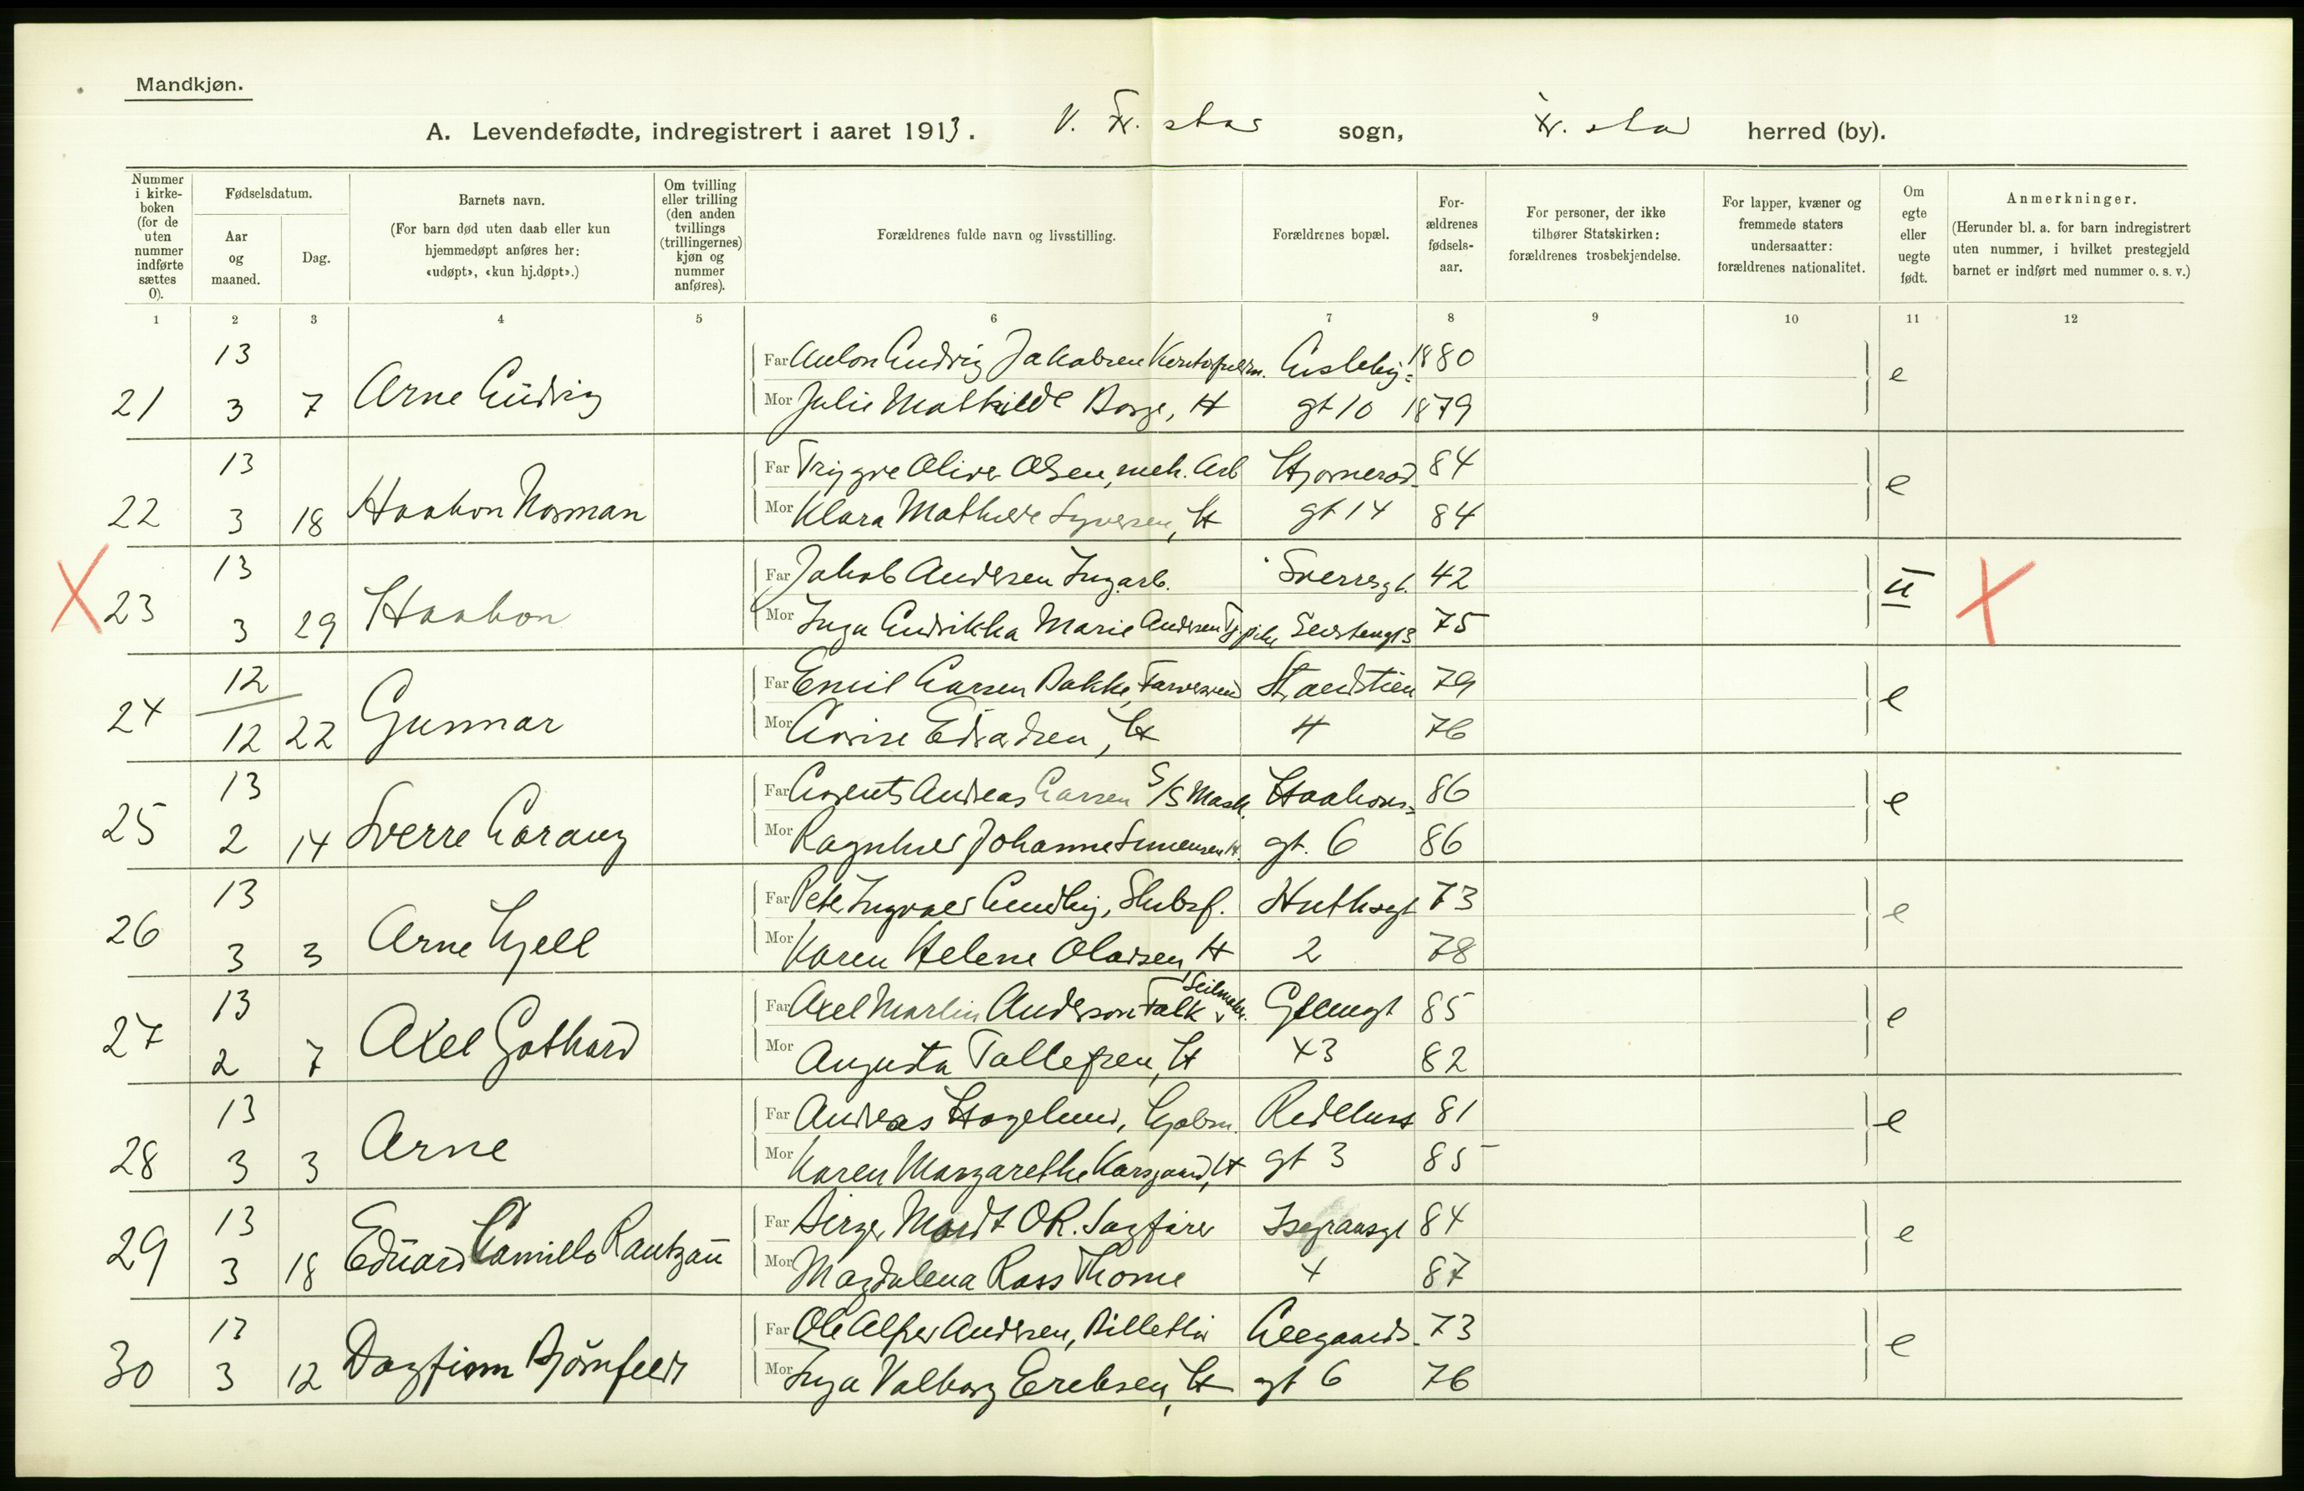 Mandkjøn.
A. Levendefødte, indregistrert i aaret 1913. V. Fr. stad sogn, Fr. stad herred (by).
Nummer i kirkeboken (for de uten nummer indførte sættes 0).
Fødselsdatum.
Aar og maaned.
Dag.
Barnets navn.
(For barn død uten daab eller kun hjemmedøpt anføres her: «udøpt», «kun hj.døpt».)
Om tvilling eller trilling (den anden tvillings (trillingernes) kjøn og nummer anføres).
Forældrenes fulde navn og livsstilling.
Forældrenes bopæl.
Forældrenes fødselsaar.
For personer, der ikke tilhører Statskirken: forældrenes trosbekjendelse.
For lapper, kvæner og fremmede staters undersaatter: forældrenes nationalitet.
Om egte eller uegte født.
Anmerkninger.
(Herunder bl. a. for barn indregistrert uten nummer, i hvilket prestegjeld barnet er indført med nummer o. s. v.)
1 2 3 4 5 6 7 8 9 10 11 12
13 Far Anton Ludvig Jakobsen 1880
21 3 7 Arne Ludvig Mor Julie Mathilde Borge, H gt 10 1879 e
13 Far Trygve Oliver Olsen, mek. Arb 84
22 3 18 Haakon Norman Mor Klara Mathilde Syversen, H gt 14 84 e
13 Far Jakob Andersen Ingarb. Sverresgt. 42
X 23 3 29 Haakon Mor Inga Ludrikka Marie Andersen 75 u X
12 Far Emil Larsen Bakke, Strandstien 79
24 12 22 Gunnar Mor Lovise Edvardsen, H 4 76 e
13 Far Lorents Andreas Larsen S/S Mask. Haakons- 86
25 2 14 Sverre Lorang Mor Ragnhild Johanne Simensen H. gt. 6 86 e
13 Far Peter Ingvald Lundby, Huthsgt 73
26 3 3 Arne Kjell Mor Karen Helene Olavsen, H 2 78 e
13 Far Axel Martin Anderson Falk, Seilmak. Glemgt 85
27 2 7 Axel Gothard Mor Augusta Tollefsen, H 43 82 e
13 Far Andreas Hagelund, Kjøbm. 81
28 3 3 Arne Mor Karen Margarethe Korsgaard, H gt 3 85 e
13 Far Birger Mordt OR. Sagfører Isegransgt 84
29 3 18 Eduard Camillo Rantzau Mor Magdalena Ross Thorne 4 87 e
13 Far Ole Alfred Andersen, Leegaards- 73
30 3 12 Dagfinn Bjørnfeldt Mor Inga Valborg Eriksen, H gt 6 76 e